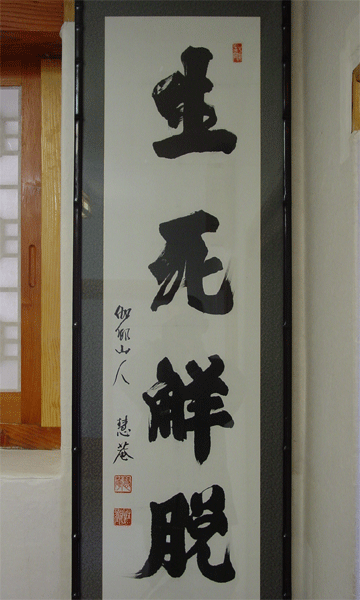 生死解脫
伽耶山人 慧菴